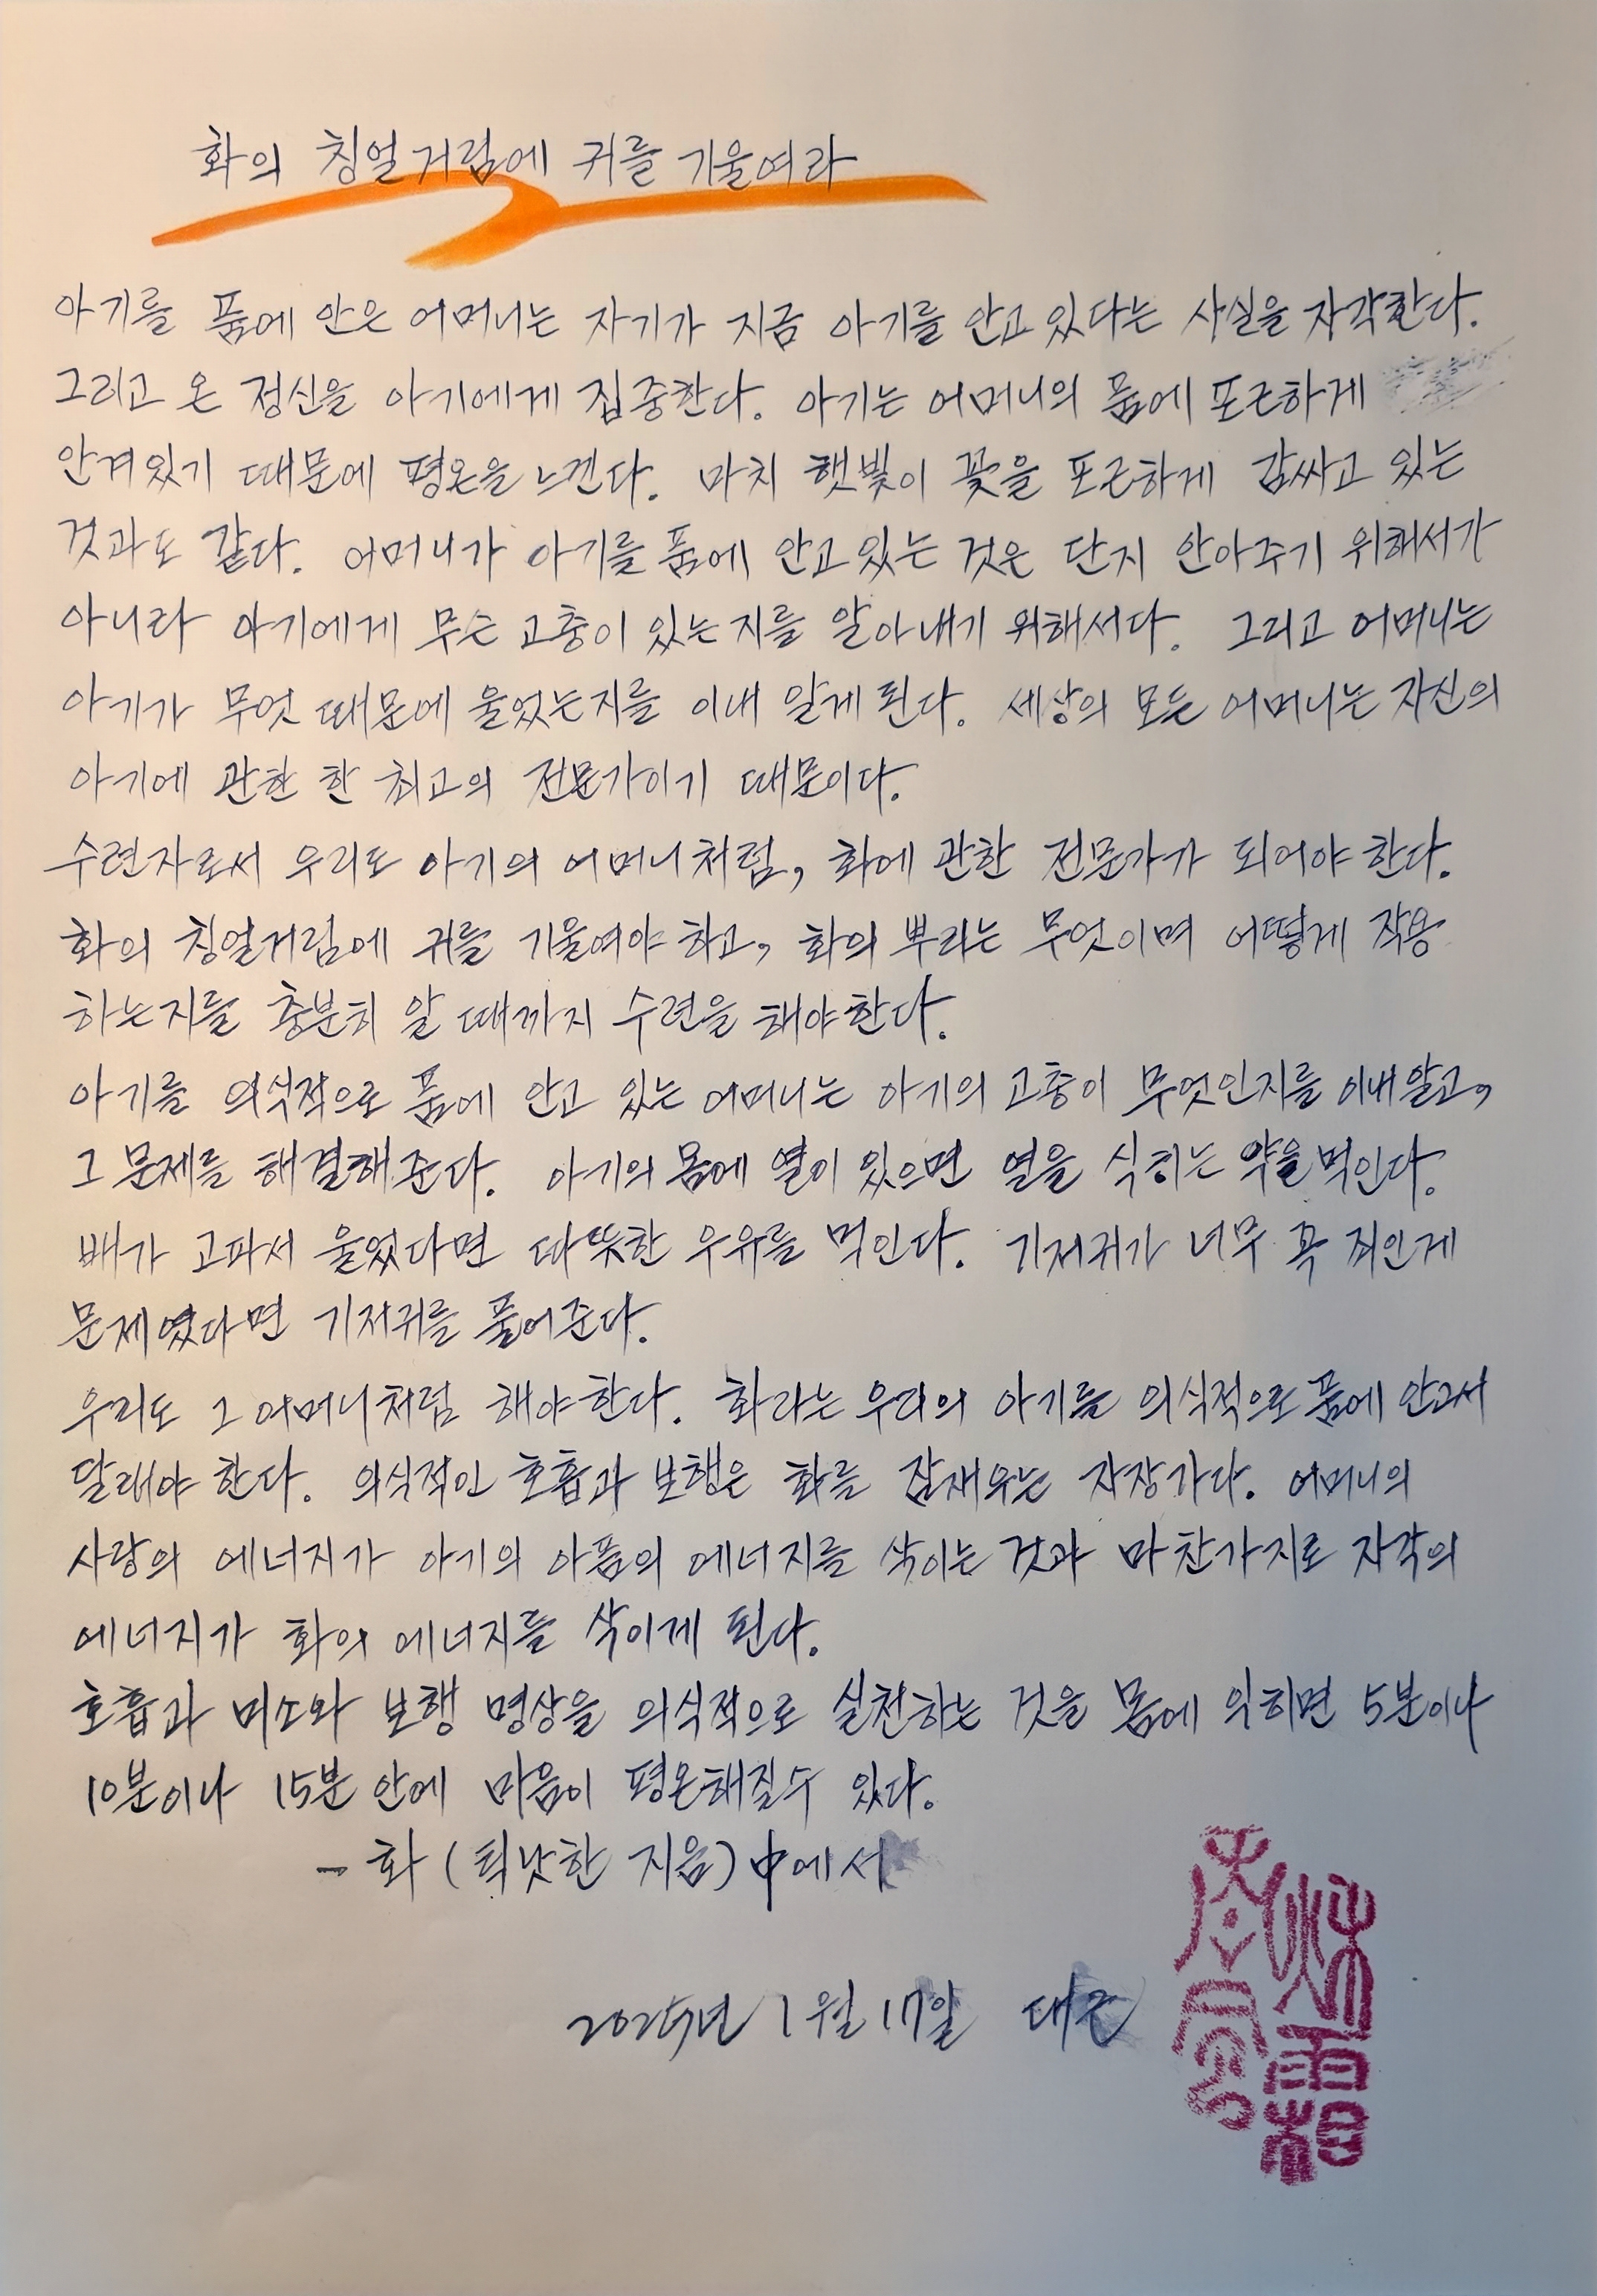 화의 칭얼거림에 귀를 기울여라
아기를 품에 안은 어머니는 자기가 지금 아기를 안고 있다는 사실을 자각한다.
그리고 온 정신을 아기에게 집중한다. 아기는 어머니의 품에 포근하게
안겨있기 때문에 평온을 느낀다. 마치 햇빛이 꽃을 포근하게 감싸고 있는
것과도 같다. 어머니가 아기를 품에 안고 있는 것은 단지 안아주기 위해서가
아니라 아기에게 무슨 고충이 있는지를 알아내기 위해서다. 그리고 어머니는
아기가 무엇 때문에 울었는지를 이내 알게 된다. 세상의 모든 어머니는 자신의
아기에 관한 한 최고의 전문가이기 때문이다.
수련자로서 우리도 아기의 어머니처럼, 화에 관한 전문가가 되어야 한다.
화의 칭얼거림에 귀를 기울여야 하고, 화의 뿌리는 무엇이며 어떻게 작용
하는지를 충분히 알 때까지 수련을 해야한다.
아기를 의식적으로 품에 안고 있는 어머니는 아기의 고충이 무엇인지를 이내 알고,
그 문제를 해결해 준다. 아기의 몸에 열이 있으면 열을 식히는 약을 먹인다.
배가 고파서 울었다면 따뜻한 우유를 먹인다. 기저귀가 너무 꼭 죄인게
문제였다면 기저귀를 풀어준다.
우리도 그 어머니처럼 해야한다. 화라는 우리의 아기를 의식적으로 품에 안고서
달래야 한다. 의식적인 호흡과 보행은 화를 잠재우는 자장가다. 어머니의
사랑의 에너지가 아기의 아픔의 에너지를 삭이는 것과 마찬가지로 자각의
에너지가 화의 에너지를 삭이게 된다.
호흡과 미소와 보행 명상을 의식적으로 실천하는 것을 몸에 익히면 5분이나
10분이나 15분 안에 마음이 평온해질수 있다.
- 화 (틱낫한 지음) 中에서
2025년 1월 17일 대근